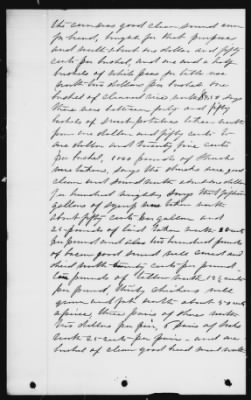 the [same] was good clean sound corn
for bread, bought for that purpose
and worth about one dollar and fifty
cents per bushel, and one and a half
bushels of which peas for table use
worth two dollars per bushel, one
bushel of cleaned rice worth $
there was between forty and fifty
bushels of sweet potatoes taken worth
from one dollar and fifty cents to
one dollar and twenty five cents
per bushel, 1000 pounds of
was taken, says the
clean and sound worth
per hundred weight, says that fifteen
gallons of syrup was taken worth
about fifty cents per gallon and
25 pounds of lard taken worth 20 cents
per pound and also two hundred pounds
of bacon good and well cured and
worth twenty cents per pound.
ten pounds of tallow worth 12½ cents
per pound, thirty chickens well
grown and fat worth about 50 cents
apiece, three pairs of shoes worth
two dollars per pair, 6 pairs of socks
worth 25 cents per pair - and one
bushel of clean good seed